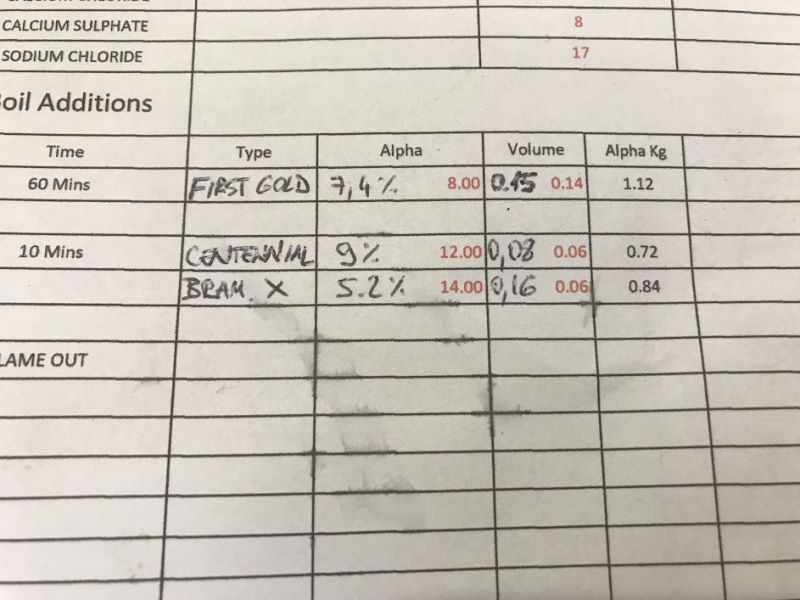 CALCIUM SULPHATE 8
SODIUM CHLORIDE 17
Boil Additions
Time Type Alpha Volume Alpha Kg
60 Mins FIRST GOLD 7,4% 8.00 0.15 0.14 1.12
10 Mins CENTENNIAL 9% 12.00 0,08 0.06 0.72
BRAM. X 5.2% 14.00 0,16 0.06 0.84
LAME OUT